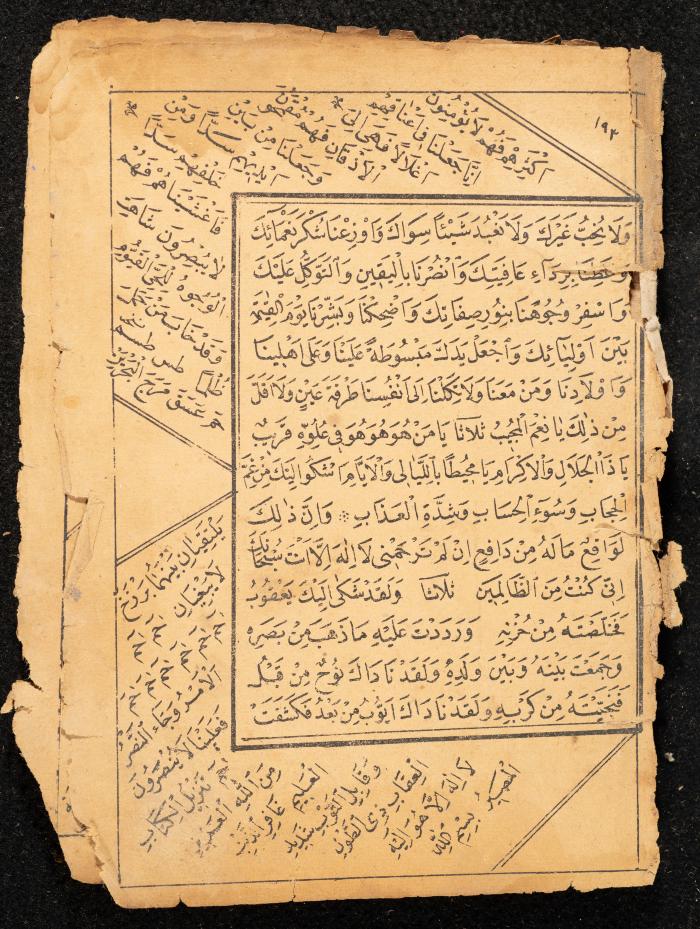 ١٩٣
وَلَا يُحِبُّ غَيْرَكَ وَلَا نَعْبُدَ شَيْئًا سِوَاكَ وَاَوْزِعْنَا شُكْرَ نَعْمَائِكَ
وَغَطِّنَا بِرِدَآءِ عَافِيَتِكَ وَانْصُرْنَا بِالْيَقِينِ وَالتَّوَكُّلِ عَلَيْكَ
وَاَسْفِرْ وُجُوهَنَا بِنُورِ صِفَاتِكَ وَاَضْحِكْنَا وَبَشِّرْنَا يَوْمَ الْقِيٰمَةِ
بَيْنَ اَوْلِيَائِكَ وَاجْعَلْ يَدَكَ مَبْسُوطَةً عَلَيْنَا وَعَلَى اَهْلِينَا
وَاَوْلَادِنَا وَمَنْ مَعَنَا وَلَا تَكِلْنَا اِلَى اَنْفُسِنَا طَرْفَةَ عَيْنٍ وَلَا اَقَلَّ
مِنْ ذٰلِكَ يَا نِعْمَ الْمُجِيبُ ثلاثا يَا مَنْ هُوَ هُوَ هُوَ فِي عُلُوِّهِ قَرِيبٌ
يَا ذَا الْجَلَالِ وَالْاِكْرَامِ يَا مُحِيطًا بِاللَّيَالِى وَالْاَيَّامِ اَشْكُو اِلَيْكَ مِنْ غَمِّ
الْحِجَابِ وَسُوءِ الْحِسَابِ وَشِدَّةِ الْعَذَابِ وَاِنَّ ذٰلِكَ
لَوَاقِعٌ مَا لَهُ مِنْ دَافِعٍ اِنْ لَمْ تَرْحَمْنِى لَا اِلٰهَ اِلَّا اَنْتَ سُبْحَانَكَ
اِنِّى كُنْتُ مِنَ الظَّالِمِينَ ثلاثا وَلَقَدْ شَكٰى اِلَيْكَ يَعْقُوبُ
فَخَلَّصْتَهُ مِنْ حُزْنِهِ وَرَدَدْتَ عَلَيْهِ مَا ذَهَبَ مِنْ بَصَرِهِ
وَجَمَعْتَ بَيْنَهُ وَبَيْنَ وَلَدِهِ وَلَقَدْ نَادَاكَ نُوحٌ مِنْ قَبْلُ
فَنَجَّيْتَهُ مِنْ كَرْبِهِ وَلَقَدْ نَادَاكَ اَيُّوبُ مِنْ بَعْدُ فَكَشَفْتَ
اَكْثَرِهِمْ فَهُمْ لَا يُؤْمِنُونَ
اِنَّا جَعَلْنَا فِى اَعْنَاقِهِمْ
اَغْلَالًا فَهِىَ اِلَى
الْاَذْقَانِ فَهُمْ مُقْمَحُونَ
وَجَعَلْنَا مِنْ بَيْنِ
اَيْدِيهِمْ سَدًّا وَمِنْ
خَلْفِهِمْ سَدًّا
فَاَغْشَيْنَاهُمْ فَهُمْ
لَا يُبْصِرُونَ شَاهَتِ
الْوُجُوهُ لِلْحَىِّ الْقَيُّومِ
وَقَدْ خَابَ مَنْ حَمَلَ
ظُلْمًا طس طسم
حم عسق مَرَجَ الْبَحْرَيْنِ
يَلْتَقِيَانِ بَيْنَهُمَا بَرْزَخٌ
لَا يَبْغِيَانِ
حم حم حم
حم حم حم حم
الْاَمْرُ وَجَاءَ النَّصْرُ
فَعَلَيْنَا لَا يُنْصَرُونَ
حم تَنْزِيلُ الْكِتَابِ
مِنَ اللّٰهِ الْعَزِيزِ
الْعَلِيمِ غَافِرِ الذَّنْبِ
وَقَابِلِ التَّوْبِ شَدِيدِ
الْعِقَابِ ذِى الطَّوْلِ
لَا اِلٰهَ اِلَّا هُوَ اِلَيْهِ
الْمَصِيرُ بِسْمِ اللّٰهِ